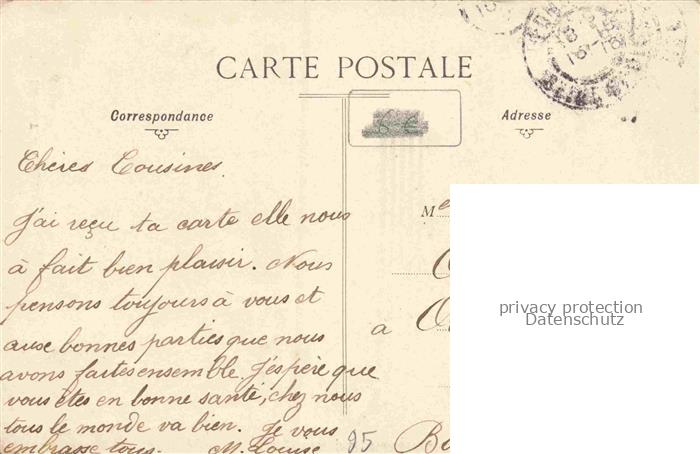 CARTE POSTALE
Correspondance
Adresse
6-€
Chères Cousines
J'ai reçu ta carte elle nous
à fait bien plaisir. Nous
pensons toujours à vous et
aux bonnes parties que nous
avons faites ensemble. J'espère que
vous êtes en bonne santé, chez nous
tous le monde va bien. Je vous
embrasse tous. M. Louise
Me
a
95
privacy protection
Datenschutz